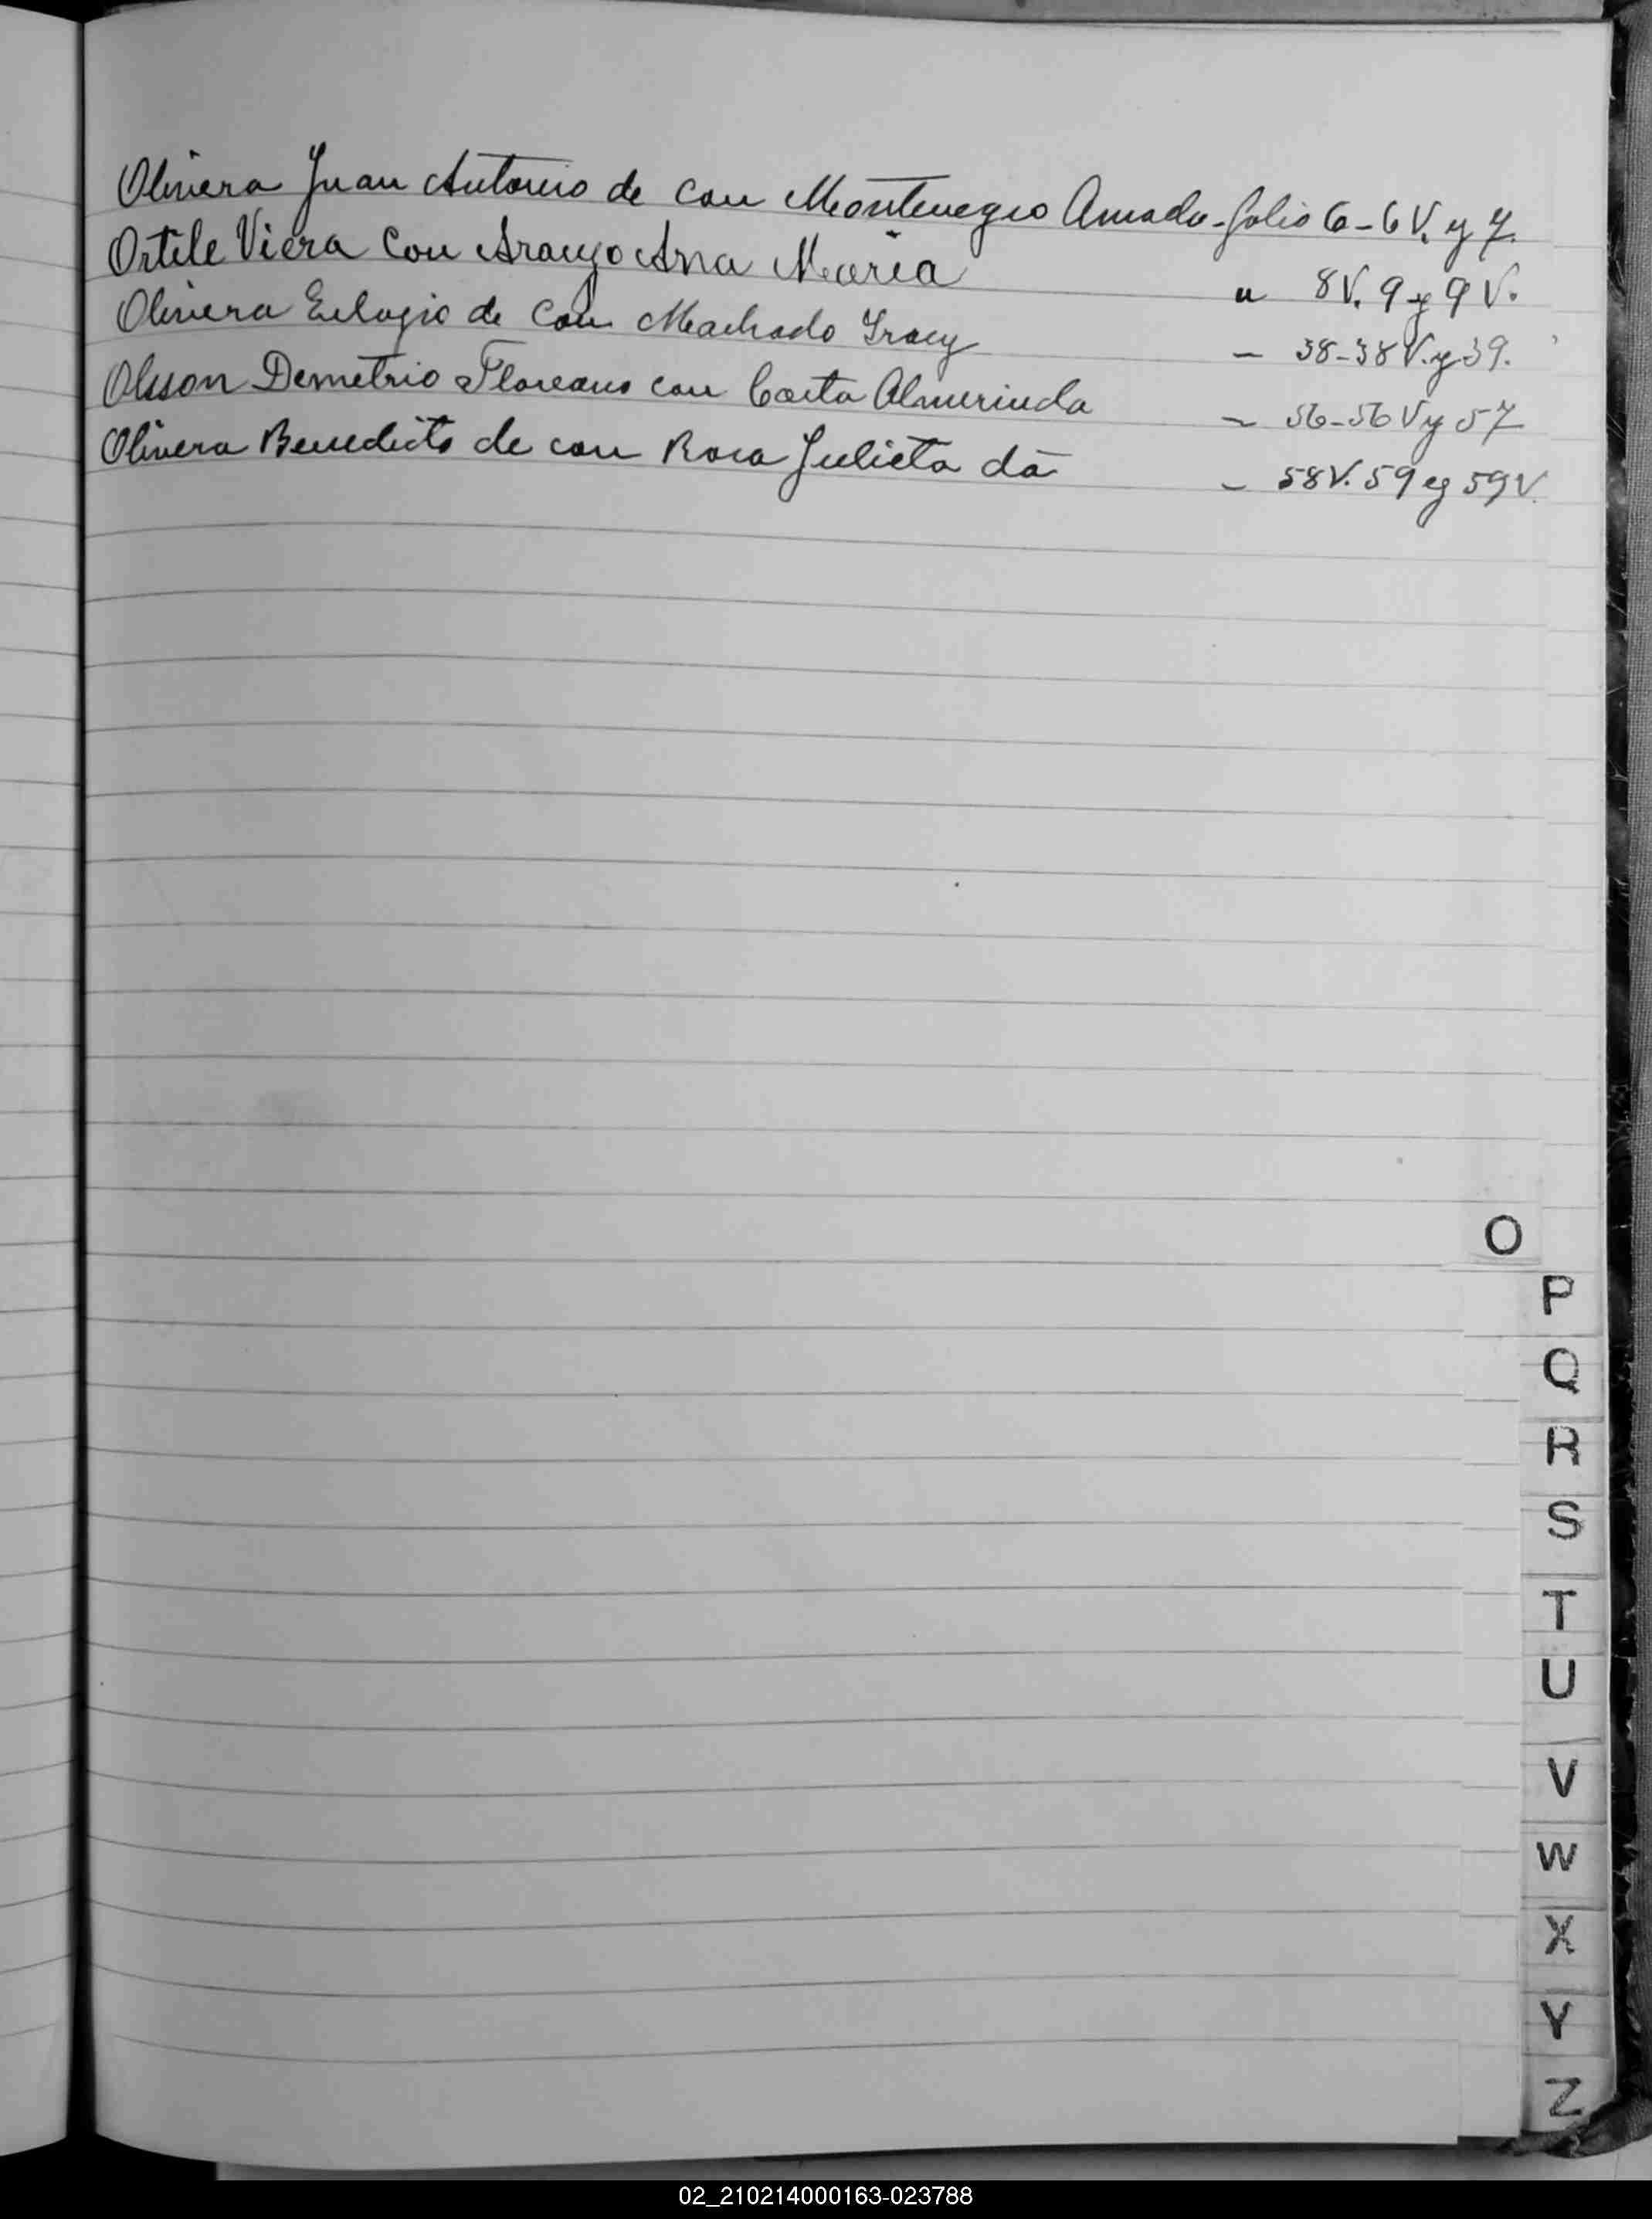 Olivera Juan Antonio de con Montenegro Amada - folio 6-6 V. y 7.
Ortile Viera con Araujo Ana María " 8V. 9 y 9 V.
Olivera Eulogio de con Machado Iracy - 38-38 V. y 39.
Olsson Demetrio Floreano con Costa Almerinda - 56-56 V y 57
Olivera Benedicto de con Rosa Julieta da - 58V. 59 y 59 V.
O
P
Q
R
S
T
U
V
W
X
Y
Z
02_210214000163-023788